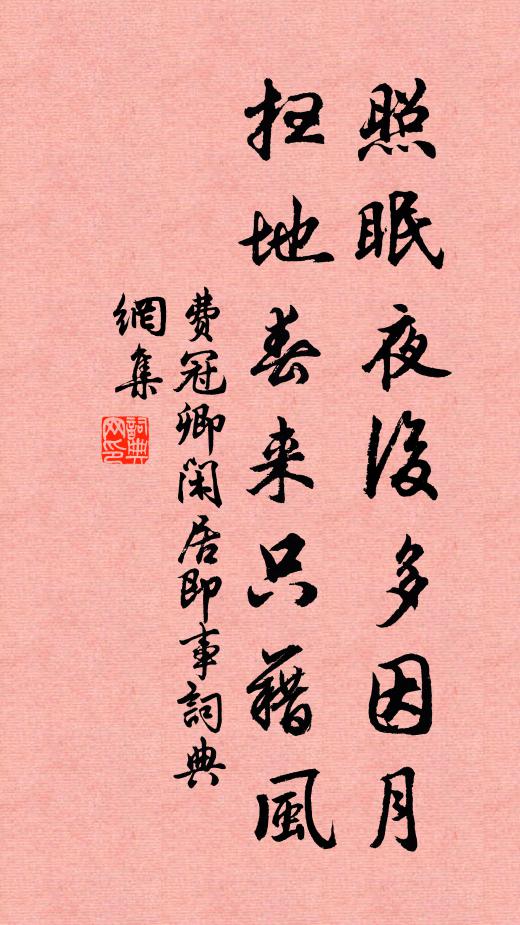 照眠夜後多因月
扫地春来只藉風
費冠卿閑居即事詞典
網集
詞典
网印